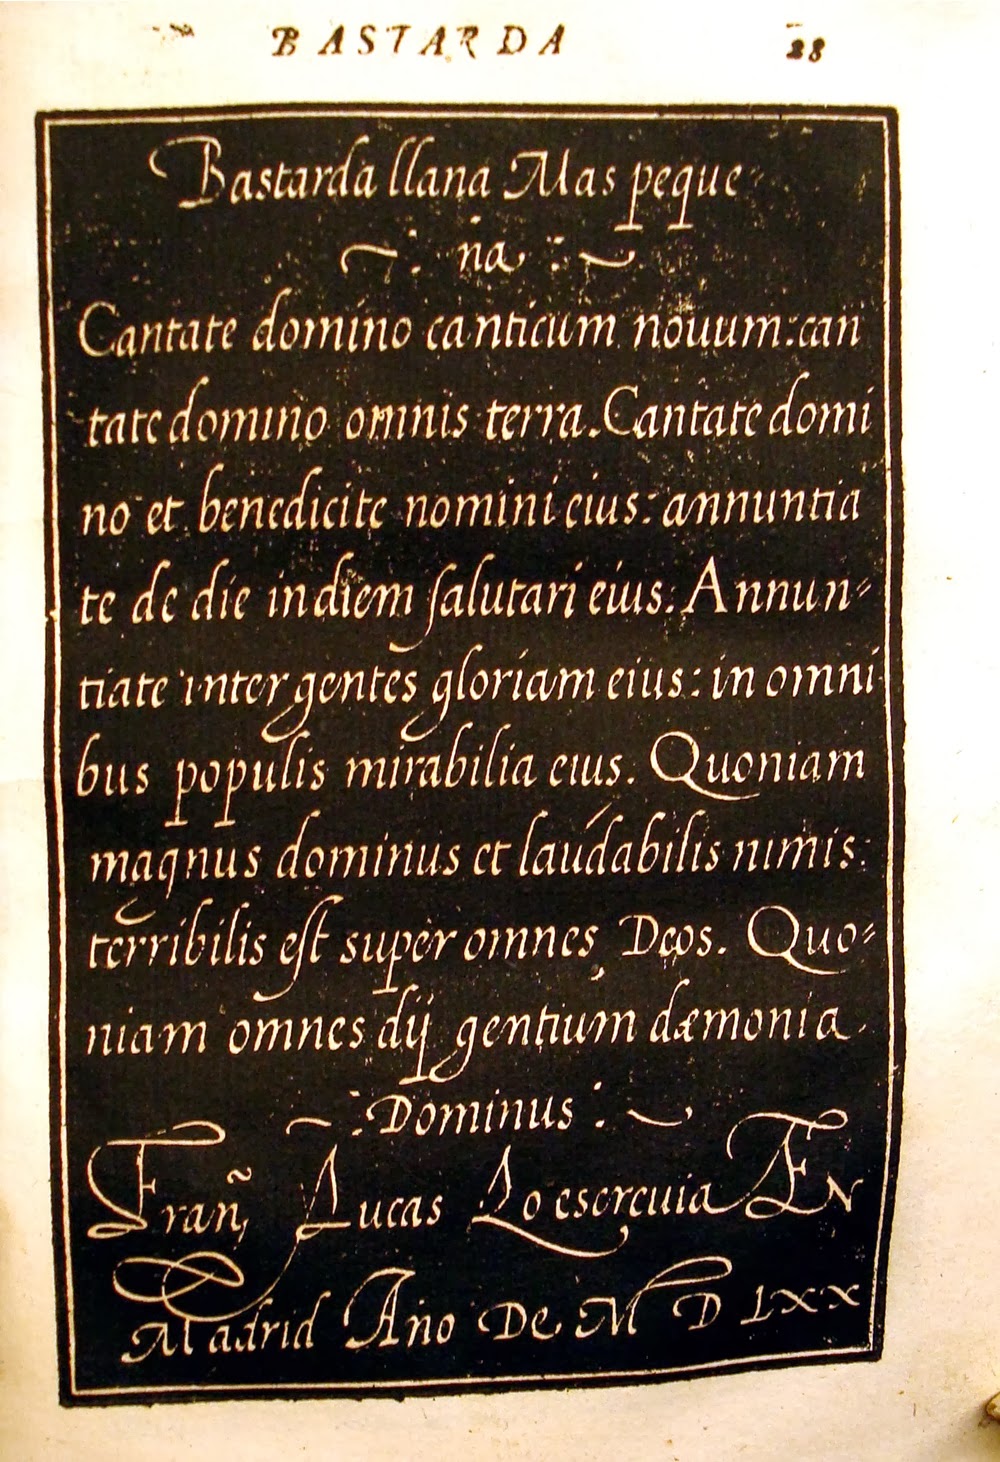 BASTARDA 28
Bastarda llana Mas peque
na
Cantate domino canticum nouum: can
tate domino omnis terra. Cantate domi
no et benedicite nomini eius: annuntia
te de die indiem salutari eius: Annun-
tiate inter gentes gloriam eius: in omni
bus populis mirabilia eius. Quoniam
magnus dominus et laudabilis nimis:
terribilis est super omnes Deos. Quo-
niam omnes dij gentium dæmonia
Dominus
Frañ Lucas Lo escreuia EN
Madrid Año De M D LXX